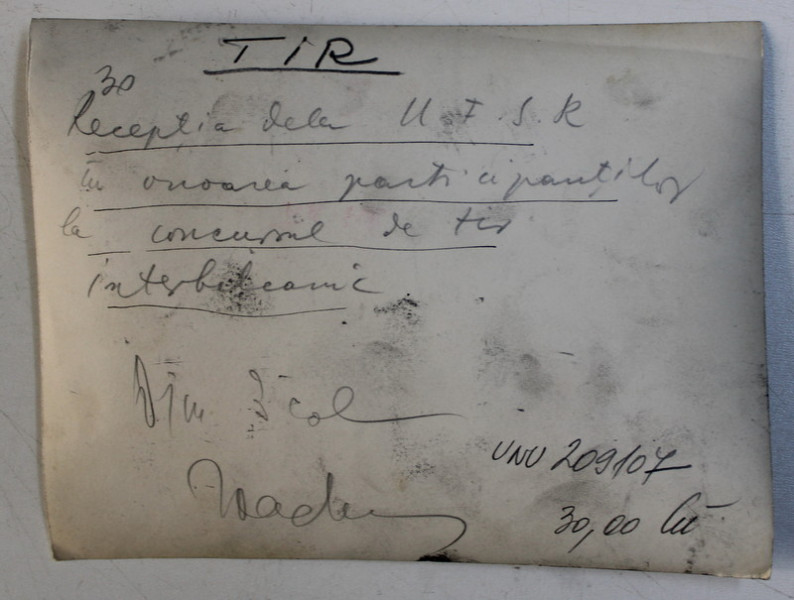 TIR
30
Recepția dela U.F.S.R
în onoarea participanților
la concursul de tir
interbalcanic
Din
UNU 209107
30,00 lei